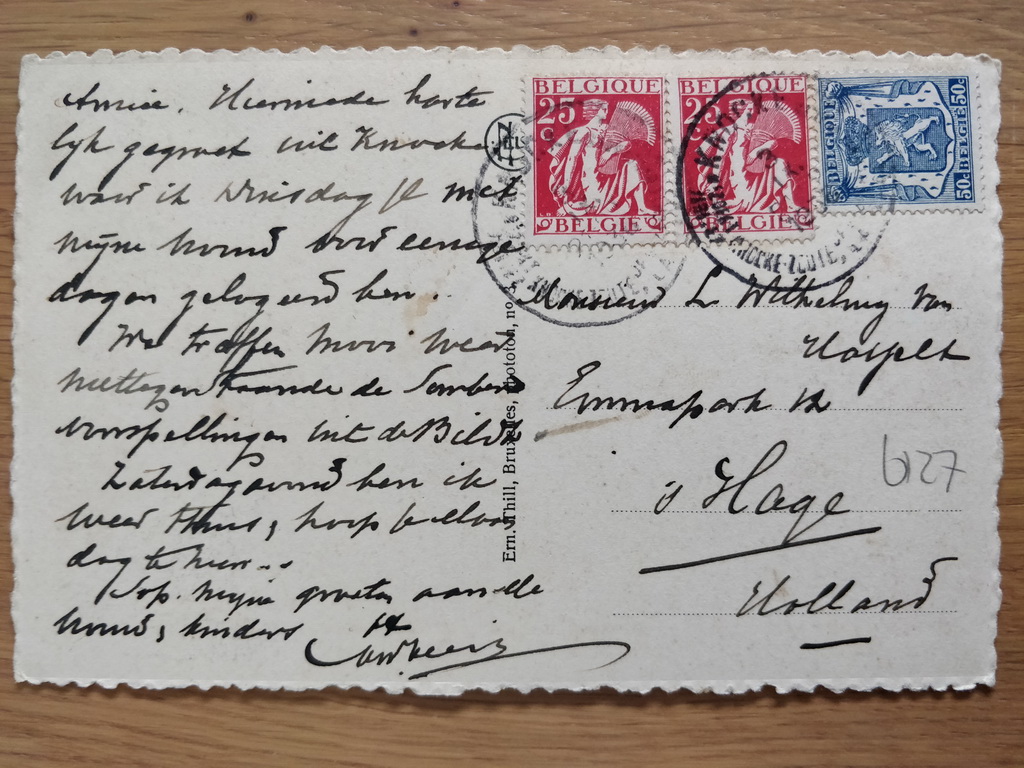 Amice. Hiermede harte
lijk gegroet uit Knocke
waar ik Dinsdag jl met
mijne vrouw voor eenige
dagen gelogeerd ben.
We troffen mooi weer
niettegenstaande de sombere
voorspellingen uit de Bildt
Zaterdagavond ben ik
weer thuis, hoop je
dag te
Sop. mijne groeten aan
vrouw, kinders
BELGIQUE
25 c
BELGIE
BELGIQUE
25 c
BELGIE
BELGIQUE 50c
50c BELGIË
KNOCKE
KNOCKE-ZOUTE
Ern. Thill, Bruxelles, Phototon, no
Monsieur L Wilhelmy van
Hasselt
Emmapark 12
's Hage
Holland
6127